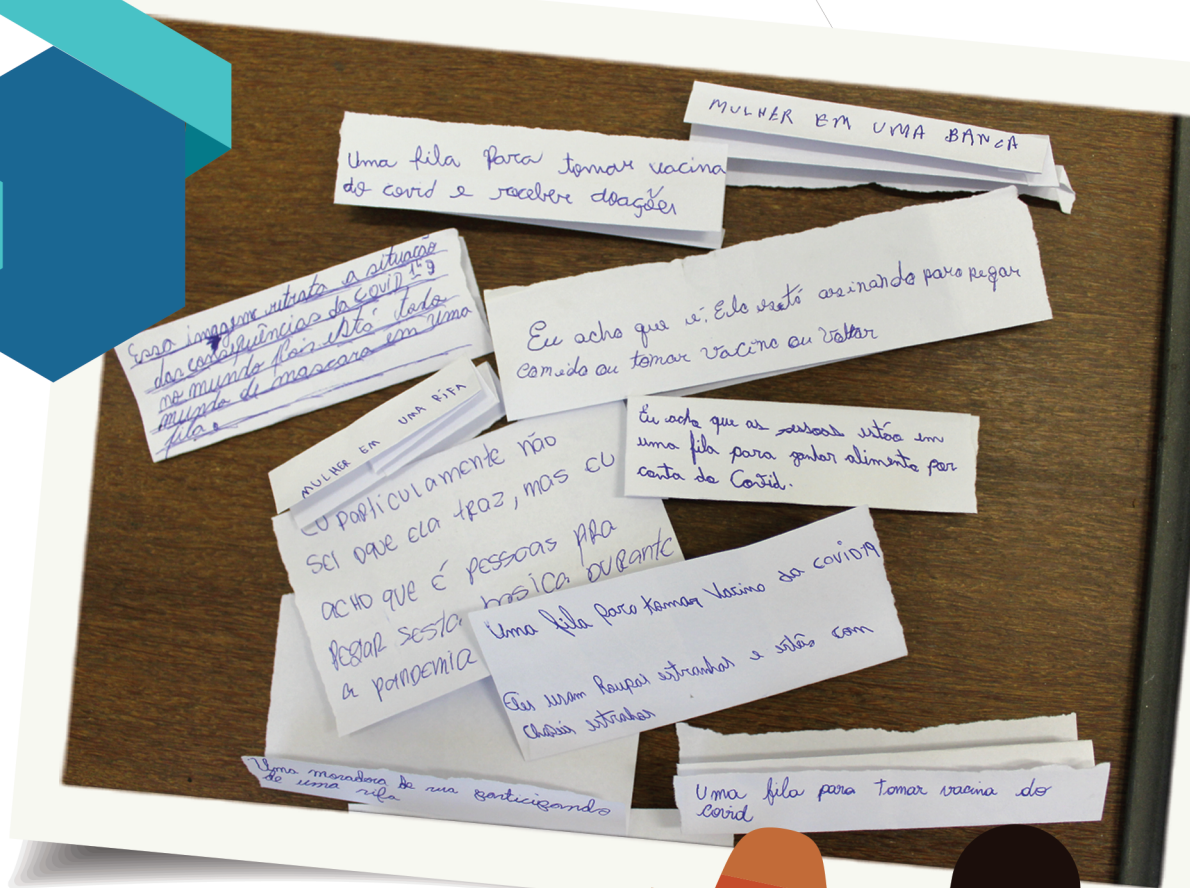 MULHER EM UMA BANCA
Uma fila Para tomar vacina
do covid e receber doações
Essa imagem retrata a situação
das consequências da COVID 19
no mundo Pois está todo
mundo de mascara em uma
fila.
Eu acho que é. Ela está assinando para pegar
comida ou tomar vacina ou Votar
MULHER EM UMA RIFA
Eu acho que as pessoas estão em
uma fila para ganhar alimento por
conta do Covid.
EU PARTICULAMENTE NÃO
SEI OQUE ELA TRAZ, MAS EU
ACHO QUE É PESSOAS PRA
PEGAR SESTA BASICA DURANTE
A PANDEMIA
Uma fila para tomar Vacina da COVID19
Eles usam Roupas estranhas e estão com
chapéis estranhos
Uma moradora de rua participando
de uma rifa
Uma fila para Tomar vacina do
covid